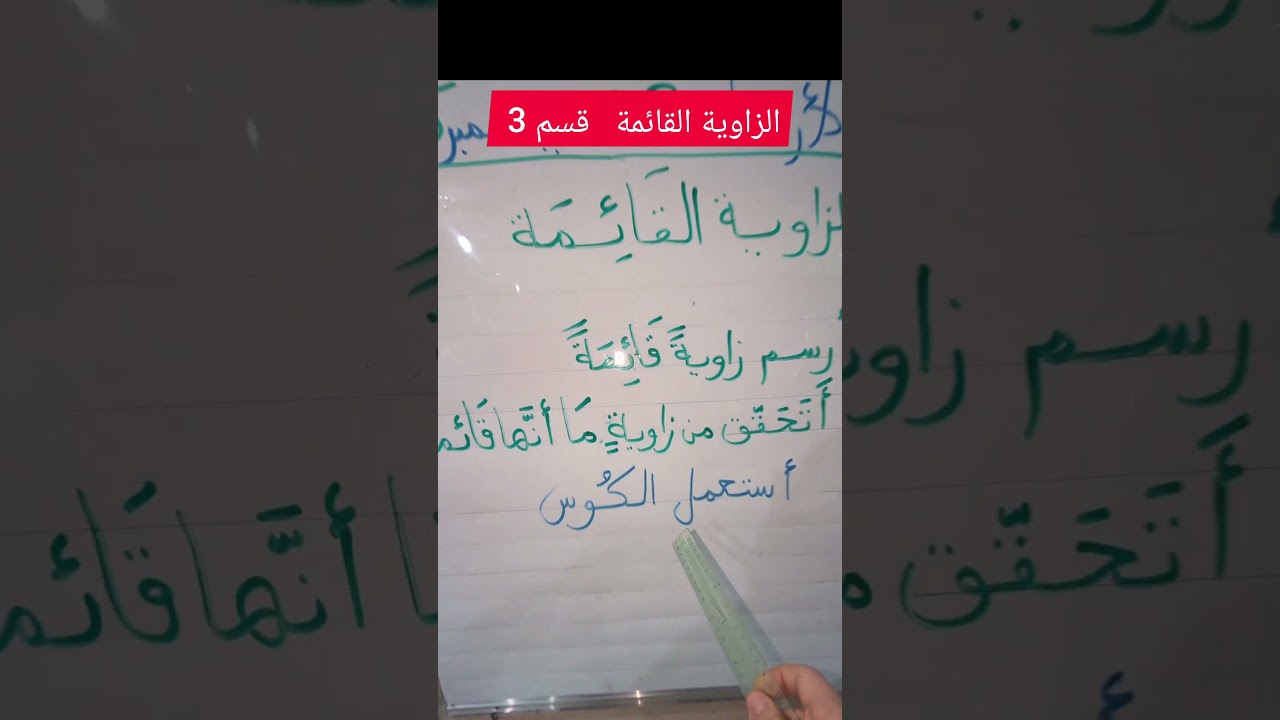 الزاوية القائمة قسم 3
الزاوية القَائِمَة
أرسم زاويةً قَائِمَةً
أَتَحَقّق من زاويةٍ مَا أنَّها قَائم
أستعمل الكُوس